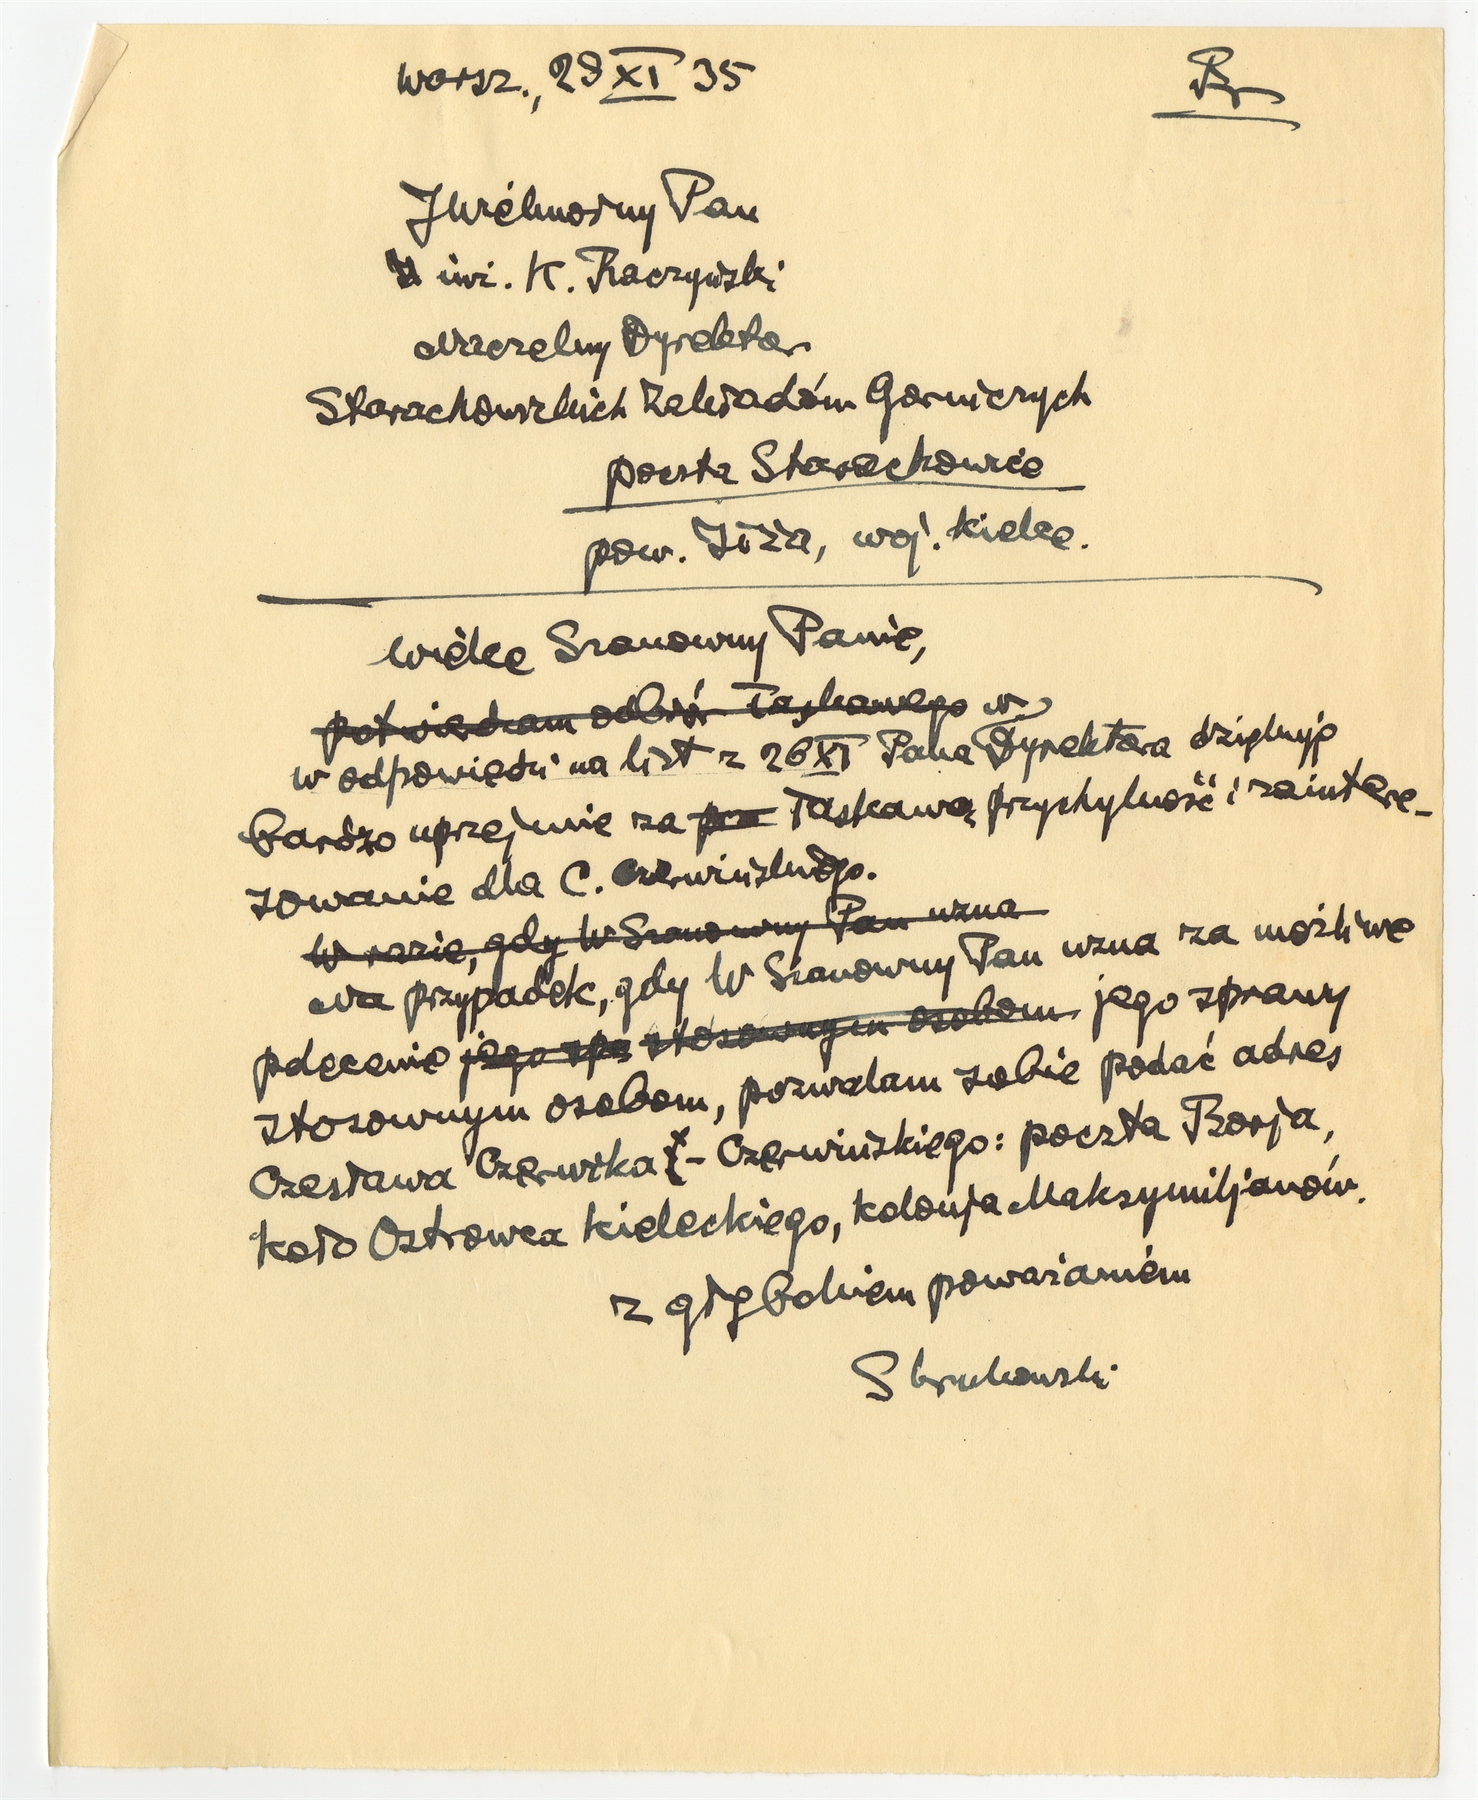 Warsz., 29 XI 35
Br
JWielmożny Pan
inż. K. Raczyński
Naczelny Dyrektor
Starachowickich Zakładów Górniczych
poczta Starachowice
pow. Iłża, woj. Kielce.
Wielce Szanowny Panie,
potwierdzam odbiór łaskawego
w odpowiedzi na list z 26 XI Pana Dyrektora dziękuję
bardzo uprzejmie za prz łaskawą przychylność i zaintere-
sowanie dla C. Czerwińskiego.
W razie, gdy W Szanowny Pan uzna
Na przypadek, gdy W Szanowny Pan uzna za możliwe
polecenie jego spr stosownym osobom jego sprawy
stosownym osobom, pozwalam sobie podać adres
Czesława Czerwika - Czerwińskiego: poczta Borja,
koło Ostrowca Kieleckiego, kolonja Maksymiljanów.
z głębokiem poważaniem